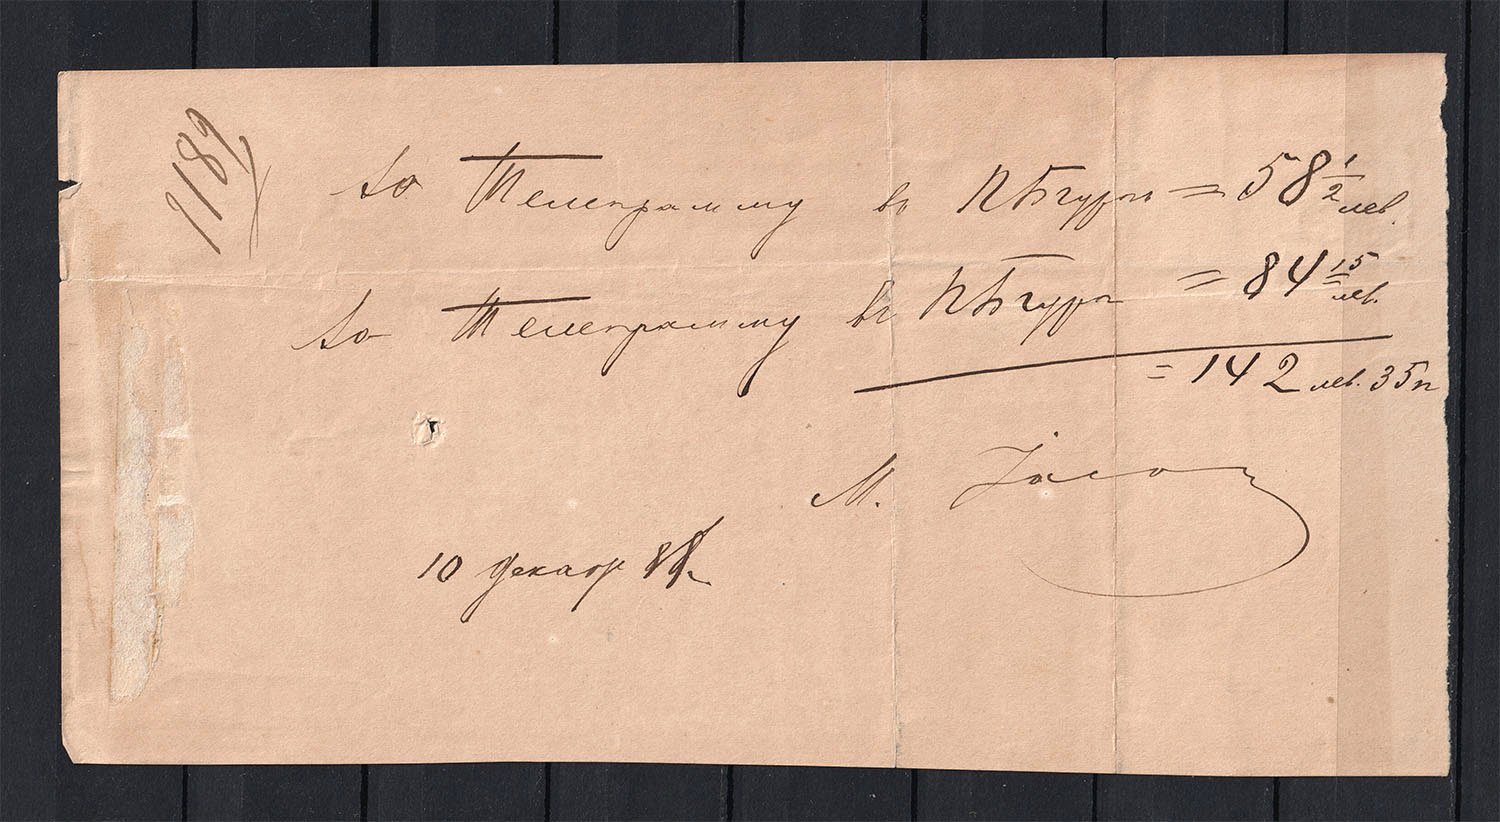 1182
до Телеграмму въ П Бгургъ = 58 1/2 лев.
до Телеграмму въ П Бгургъ = 84 15 лев.
= 142 лев. 35 п
М.
10 декабр 88 г.